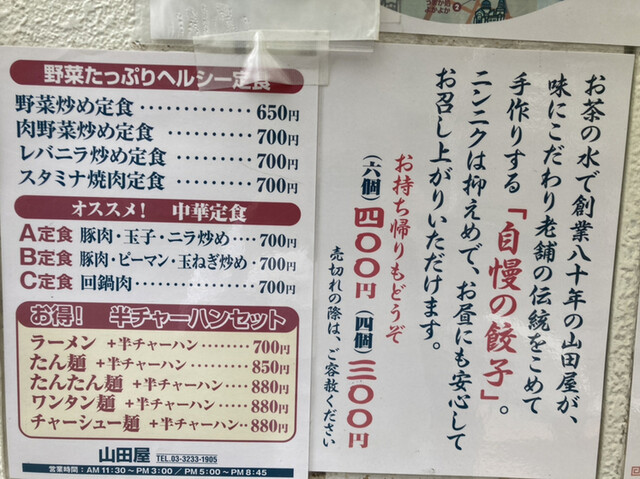 野菜たっぷりヘルシー定食
野菜炒め定食 ・・・・・・・・・・・ 650円
肉野菜炒め定食 ・・・・・・・・・ 700円
レバニラ炒め定食 ・・・・・・・ 700円
スタミナ焼肉定食 ・・・・・・・ 700円
オススメ! 中華定食
A定食 豚肉・玉子・ニラ炒め・・・・700円
B定食 豚肉・ピーマン・玉ねぎ炒め・700円
C定食 回鍋肉・・・・・・・・・・・・・・・700円
お得! 半チャーハンセット
ラーメン +半チャーハン ・・・・・・700円
たん麺 +半チャーハン・・・・・・850円
たんたん麺 +半チャーハン・・・880円
ワンタン麺 +半チャーハン・・・880円
チャーシュー麺 +半チャーハン・・880円
山田屋 TEL.03-3233-1905
営業時間:AM 11:30~PM 3:00/PM 5:00~PM 8:45
お茶の水で創業八十年の山田屋が、
味にこだわり老舗の伝統をこめて
手作りする「自慢の餃子」。
ニンニクは抑えめで、お昼にも安心して
お召し上がりいただけます。
お持ち帰りもどうぞ
(六個)四〇〇円(四個)三〇〇円
売切れの際は、ご容赦ください